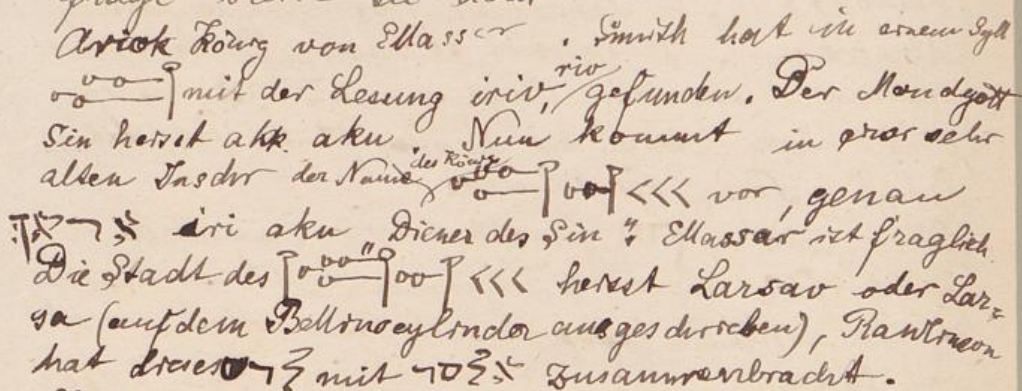 Ariok König von Ellassar. Smith hat in einem Syll
mit der Lesung iriv, riv gefunden. Der Mondgott
Sin heisst akk aku. Nun kommt in einer sehr
alten Inschr der Name des Königs <<< vor, genau
iri aku "Diener des Sin". Ellassar ist fraglich.
Die Stadt des <<< heisst Larsav oder Lar=
sa (auf dem Bellinocylinder ausgeschrieben), Rawlinson
hat dieses mit zusammenbracht.